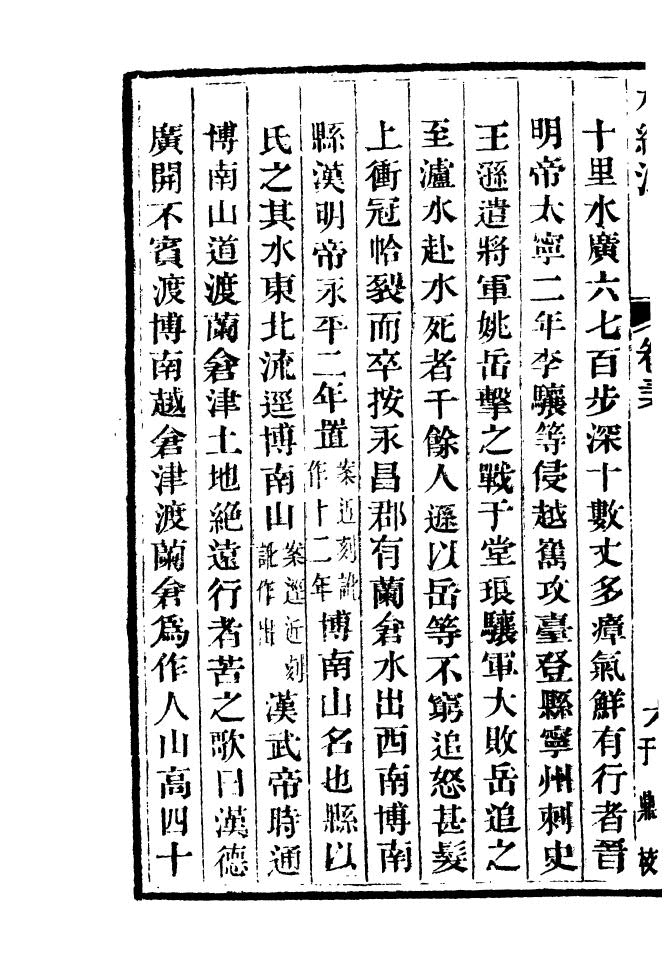 十里水廣六七百步深十數丈多瘴氣鮮有行者晉
明帝太寧二年李驤等侵越嶲攻臺登縣寧州刺史
王遜遣將軍姚岳擊之戰于堂琅驤軍大敗岳追之
至瀘水赴水死者千餘人遜以岳等不窮追怒甚髮
上衝冠帢裂而卒按永昌郡有蘭倉水出西南博南
縣漢明帝永平二年置案近刻訛作十二年博南山名也縣以
氏之其水東北流逕博南山案逕近刻訛作出漢武帝時通
博南山道渡蘭倉津土地絶遠行者苦之歌曰漢德
廣開不賓渡博南越倉津渡蘭倉爲作人山高四十